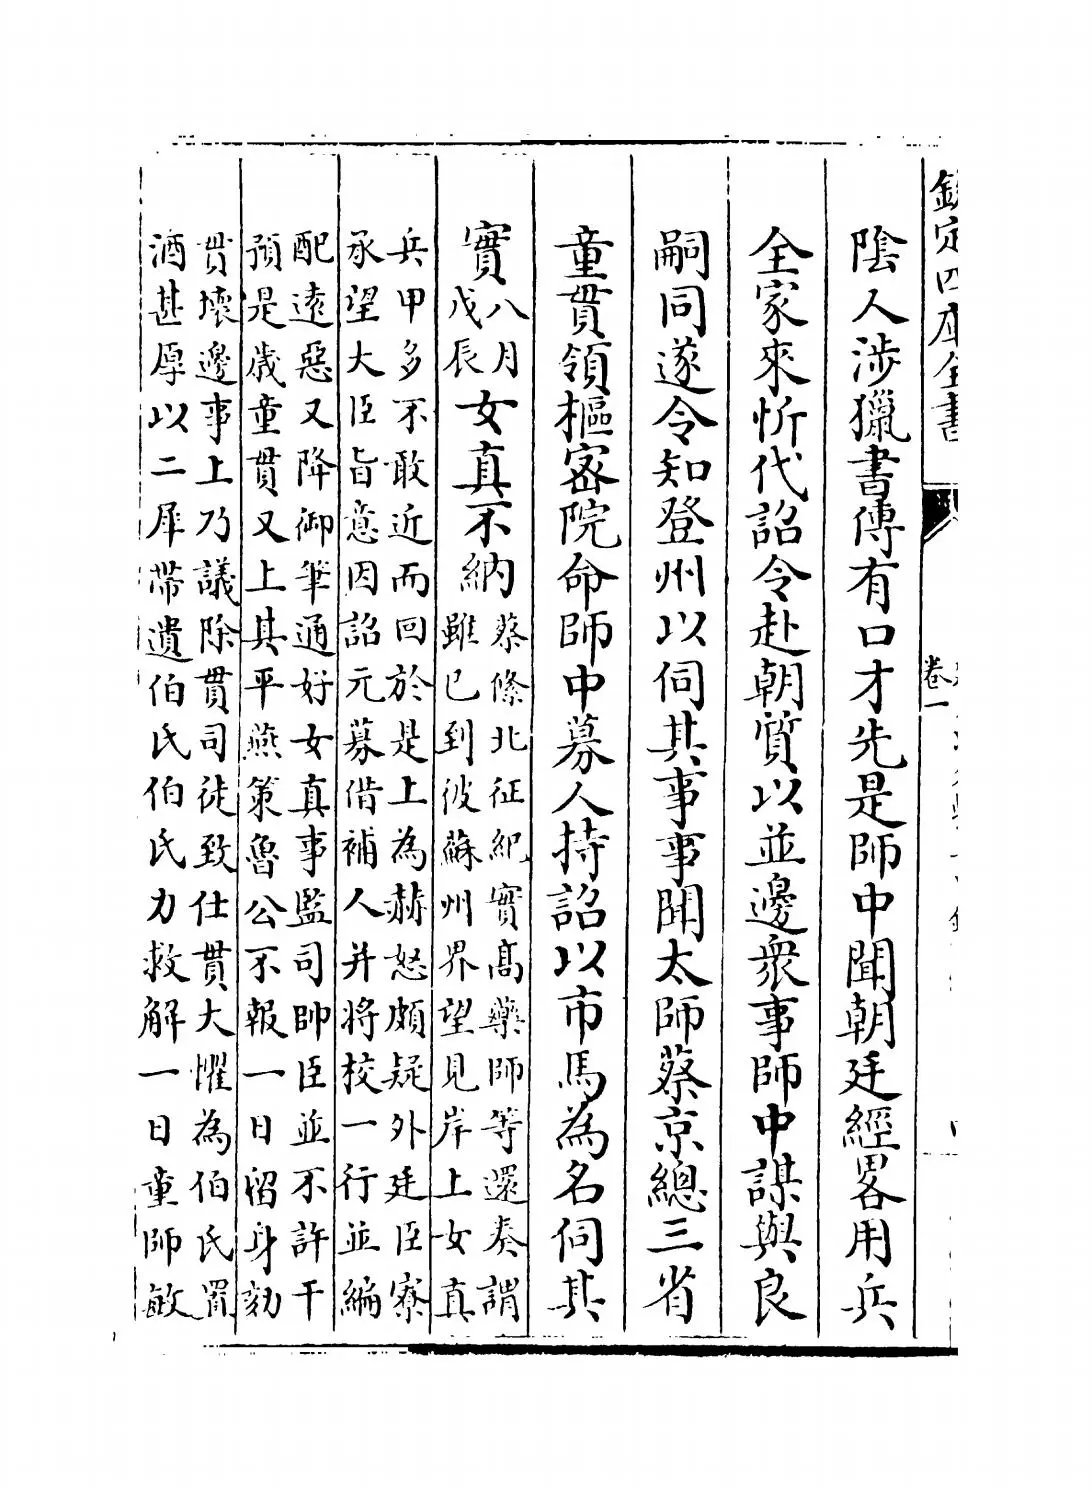 欽定四庫全書
卷一
陰人涉獵書傳有口才先是師中聞朝廷經畧用兵
全家來忻代詔令赴朝質以並邊衆事師中謀與良
嗣同遂令知登州以伺其事事聞太師蔡京總三省
童貫領樞宻院命師中募人持詔以市馬為名伺其
實
八月
戊辰
女真不納
蔡絛北征紀實髙藥師等還奏謂
雖已到彼蘇州界望見岸上女真
兵甲多不敢近而回於是上為赫怒頗疑外廷臣寮
承望大臣旨意因詔元募借補人并將校一行並編
配逺惡又降御筆通好女真事監司帥臣並不許干
預是歲童貫又上其平燕策魯公不報一日留身劾
貫壞邊事上乃議除貫司徒致仕貫大懼為伯氏置
酒甚厚以二犀帶遺伯氏伯氏力救解一日童師敏